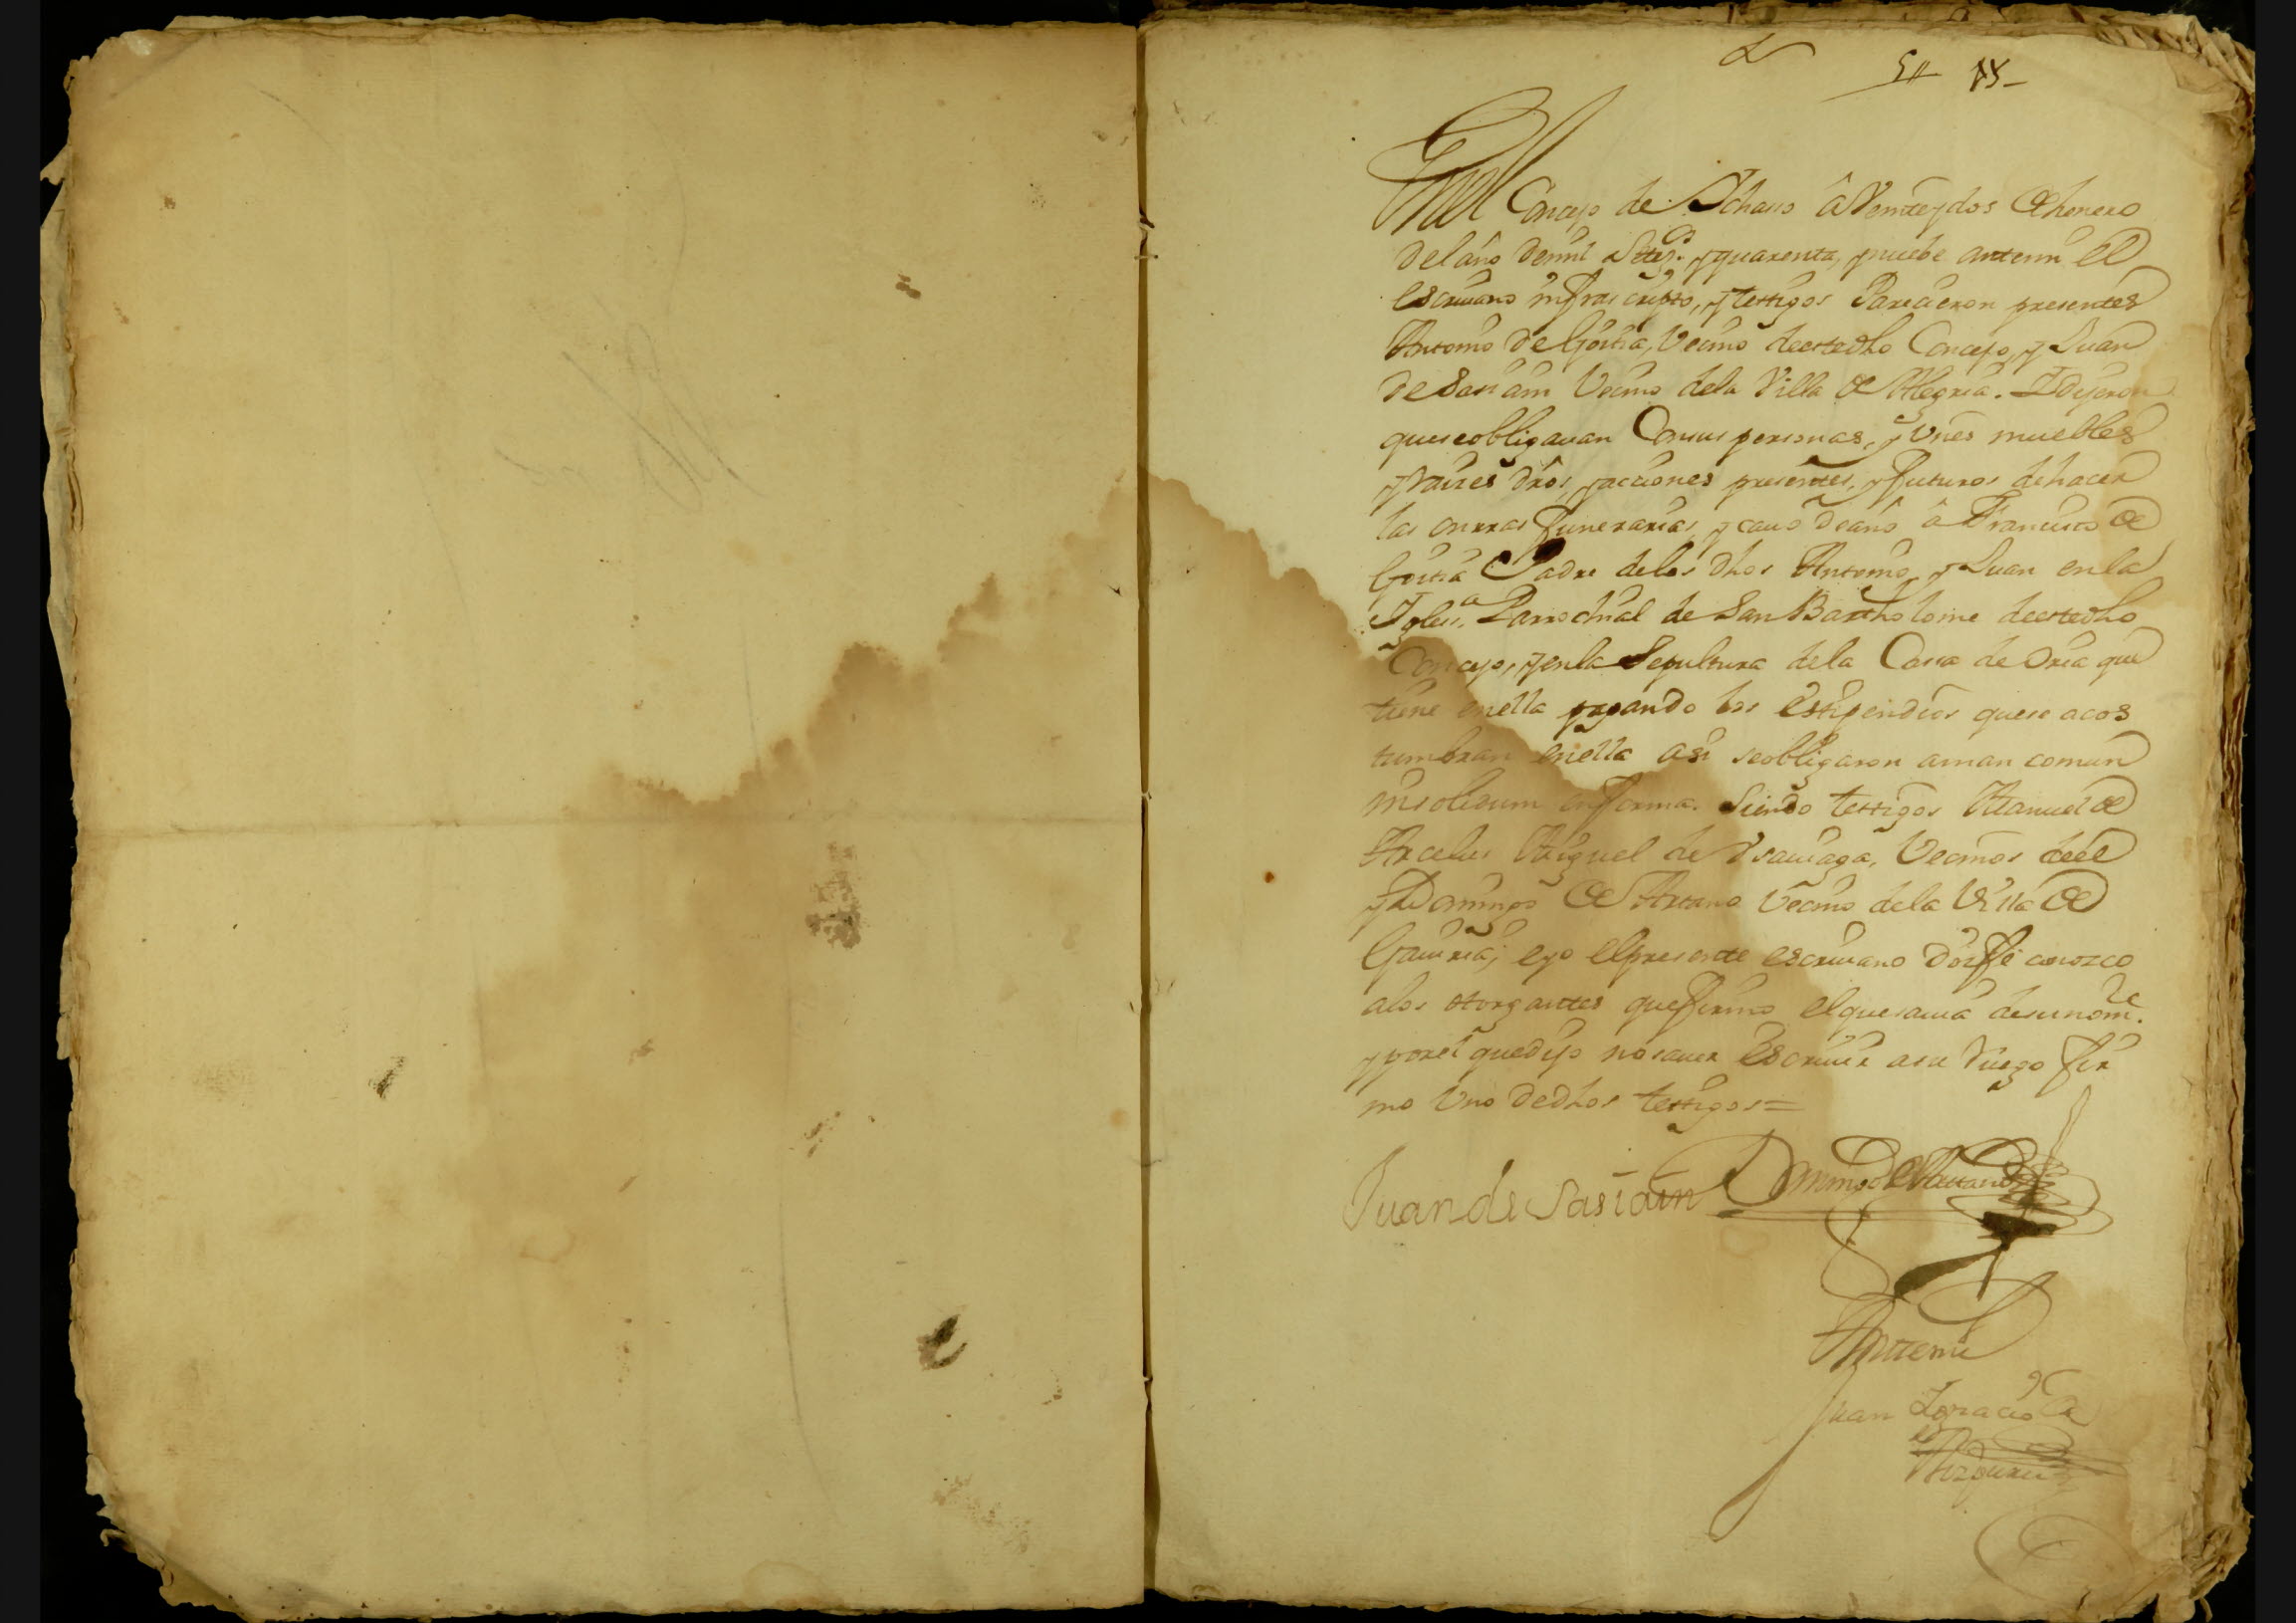 5 15
En el Concejo de Ichaso â Veinte y dos de henero
del año de mil Settez.os y quarenta, y nuebe ante mi el
escriuano infrascripto, y testigos Parecieron presentes
Antonio de Goitia, Vecino de este dho Concejo, y Juan
de Sasiain Vecino de la Villa de Alegria. Y dijeron
que se obligauan Con sus personas, y Vnês muebles
y raizes drôs, y acciones presentes, y futuros de hacer
las onrras funerarias, y cauo de año â Francisco de
Goitia Padre de los dhos Antonio, y Juan en la
Igless.a Parrochial de San Bartholome de este dho
Concejo, y en la Sepultura de la Cassa de Oria que
tiene en ella pagando los estipendios que se acos
tumbran en ella asi se obligaron a man comun
insolidum en forma. Siendo testigos Manuel de
Arcelus Miguel de Vsauiaga, Vecinos de el
y Domingo de Astano Vecino de la Villa de
Gauiria; e yo el presente escriuano doi fe conozco
a los otorgantes que firmo el que sauia de su nom.re
y por el que dijo no sauer Escriuir a su ruego fir
mo Vno de dhos testigos=
Juan de Sasiain Domingo de
Ante mi
Juan Ignacio de